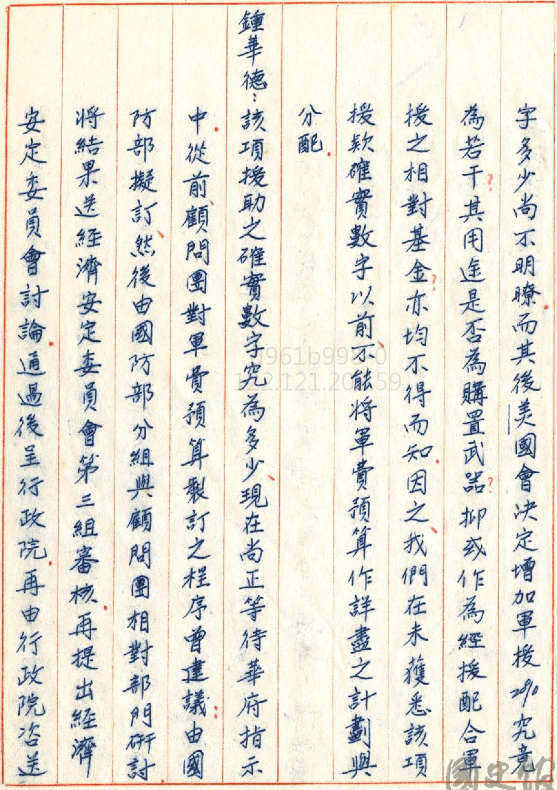 字多少尚不明瞭而其後美國會決定增加軍援2%究竟
為若干其用途是否為購置武器抑或作為經援配合軍
援之相對基金亦均不得而知因之我們在未獲悉該項
援款確實數字以前不能將軍費預算作詳盡之計劃與
分配
鍾華德：該項援助之確實數字究為多少現在尚正等待華府指示
中從前顧問團對軍費預算製訂之程序曾建議由國
防部擬訂然後由國防部分組與顧問團相對部門研討
將結果送經濟安定委員會第三組審核再提出經濟
安定委員會討論通過後呈行政院再由行政院咨送
國史館